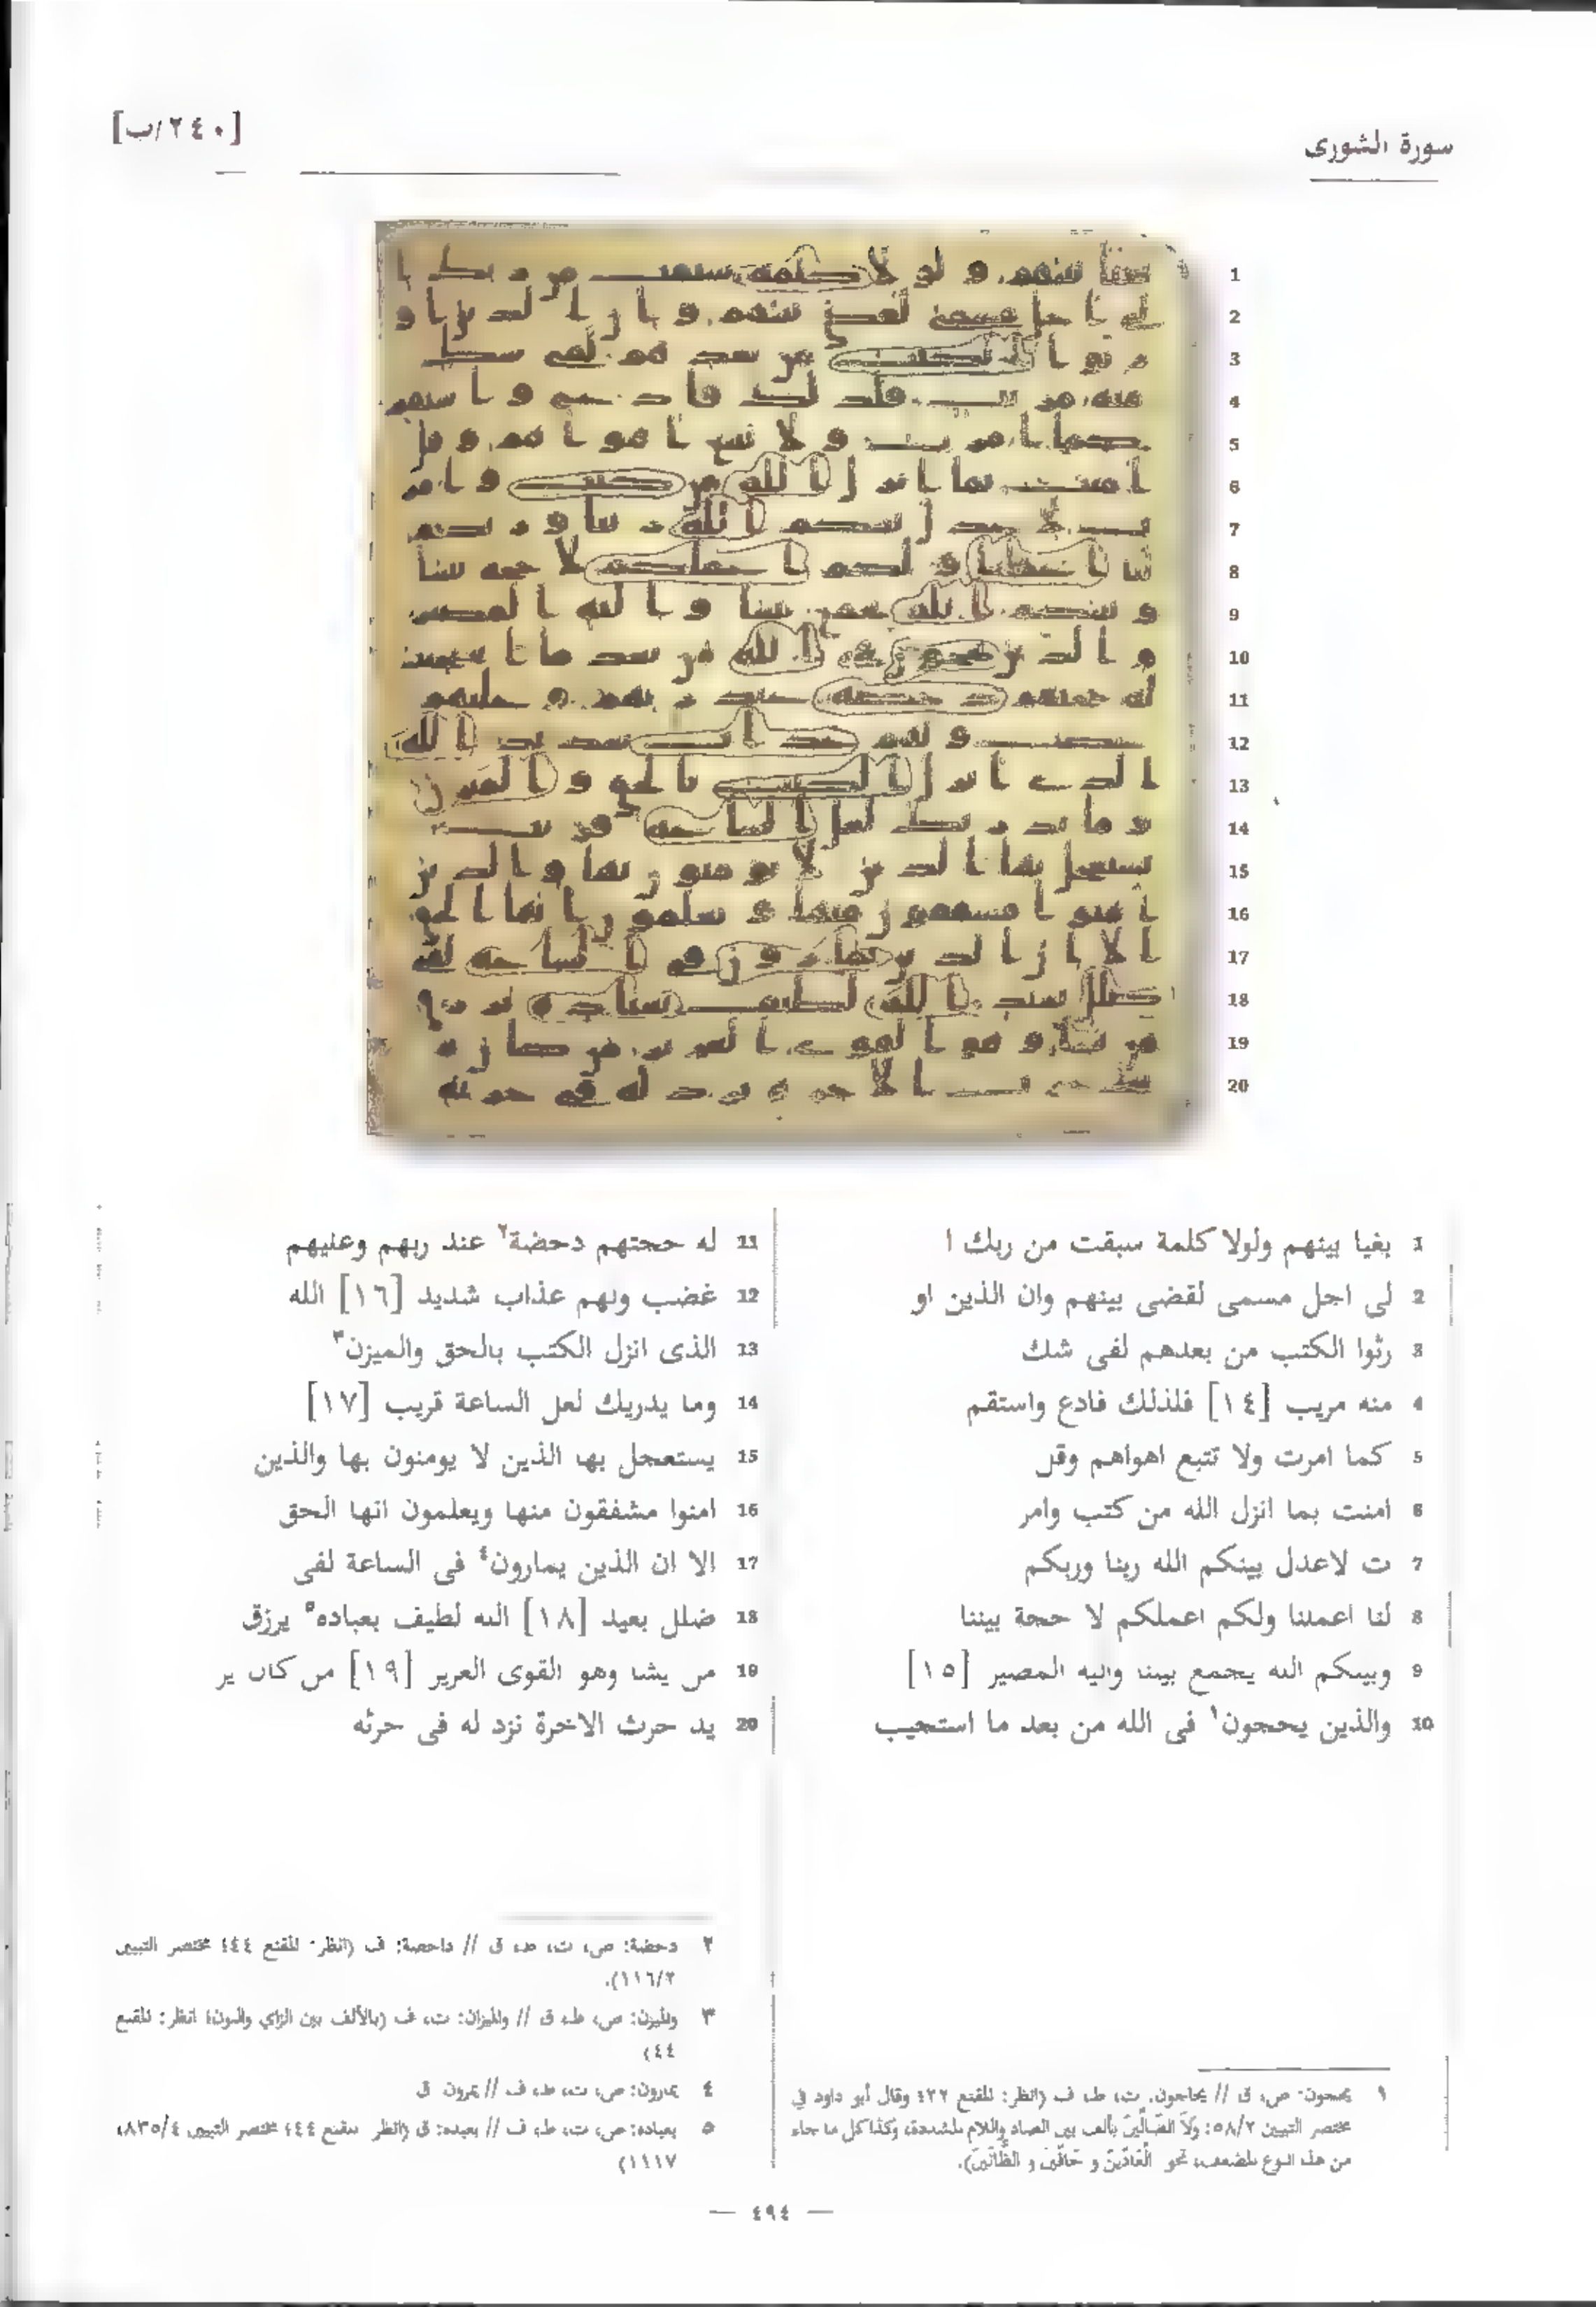 سورة الشورى
[٢٤٠/ب]
1
2
3
4
5
6
7
8
9
10
11
12
13
14
15
16
17
18
19
20
1 بغيا بينهم ولولا كلمة سبقت من ربك ا
2 لى اجل مسمى لقضى بينهم وان الذين او
3 رثوا الكتب من بعدهم لفى شك
4 منه مريب [١٤] فلذلك فادع واستقم
5 كما امرت ولا تتبع اهواهم وقل
6 امنت بما انزل الله من كتب وامر
7 ت لاعدل بينكم الله ربنا وربكم
8 لنا اعملنا ولكم اعملكم لا حجة بيننا
9 وبينكم الله يجمع بيننا واليه المصير [١٥]
10 والذين يحجون١ فى الله من بعد ما استجيب
11 له حجتهم دحضة٢ عند ربهم وعليهم
12 غضب ولهم عذاب شديد [١٦] الله
13 الذى انزل الكتب بالحق والميزن٣
14 وما يدريك لعل الساعة قريب [١٧]
15 يستعجل بها الذين لا يومنون بها والذين
16 امنوا مشفقون منها ويعلمون انها الحق
17 الا ان الذين يمارون٤ فى الساعة لفى
18 ضلل بعيد [١٨] الله لطيف بعباده٥ يرزق
19 من يشا وهو القوى العزيز [١٩] من كان ير
20 يد حرث الاخرة نزد له فى حرثه
١ يحجون: ص، ق // يحاجون: ت، ط، ف (انظر: المقنع ٤٣٢ وقال أبو داود في
مختصر التبيين ٥٨/٢: وَلَا الضَّالِّينَ بألف بين الضاد واللام المشددة، وكذا كل ما جاء
من هذا النوع المضعف، نحو الْعَادِّينَ و حَافِّينَ و الظَّانِّينَ).
٢ دحضة: ص، ت، ط، ق // داحضة: ف (انظر: المقنع ٤٤٤ مختصر التبيين
١١٦/٢).
٣ والميزن: ص، ط، ق // والميزان: ت، ف (بالألف بين الزاي والنون؛ انظر: المقنع
٤٤)
٤ يمارون: ص، ت، ط، ف // يمرون: ق
٥ بعباده: ص، ت، ط، ف // بعبده: ق (انظر المقنع ٤٤٤ مختصر التبيين ٨٣٥/٤،
١١١٧)
— ٤٩٤ —